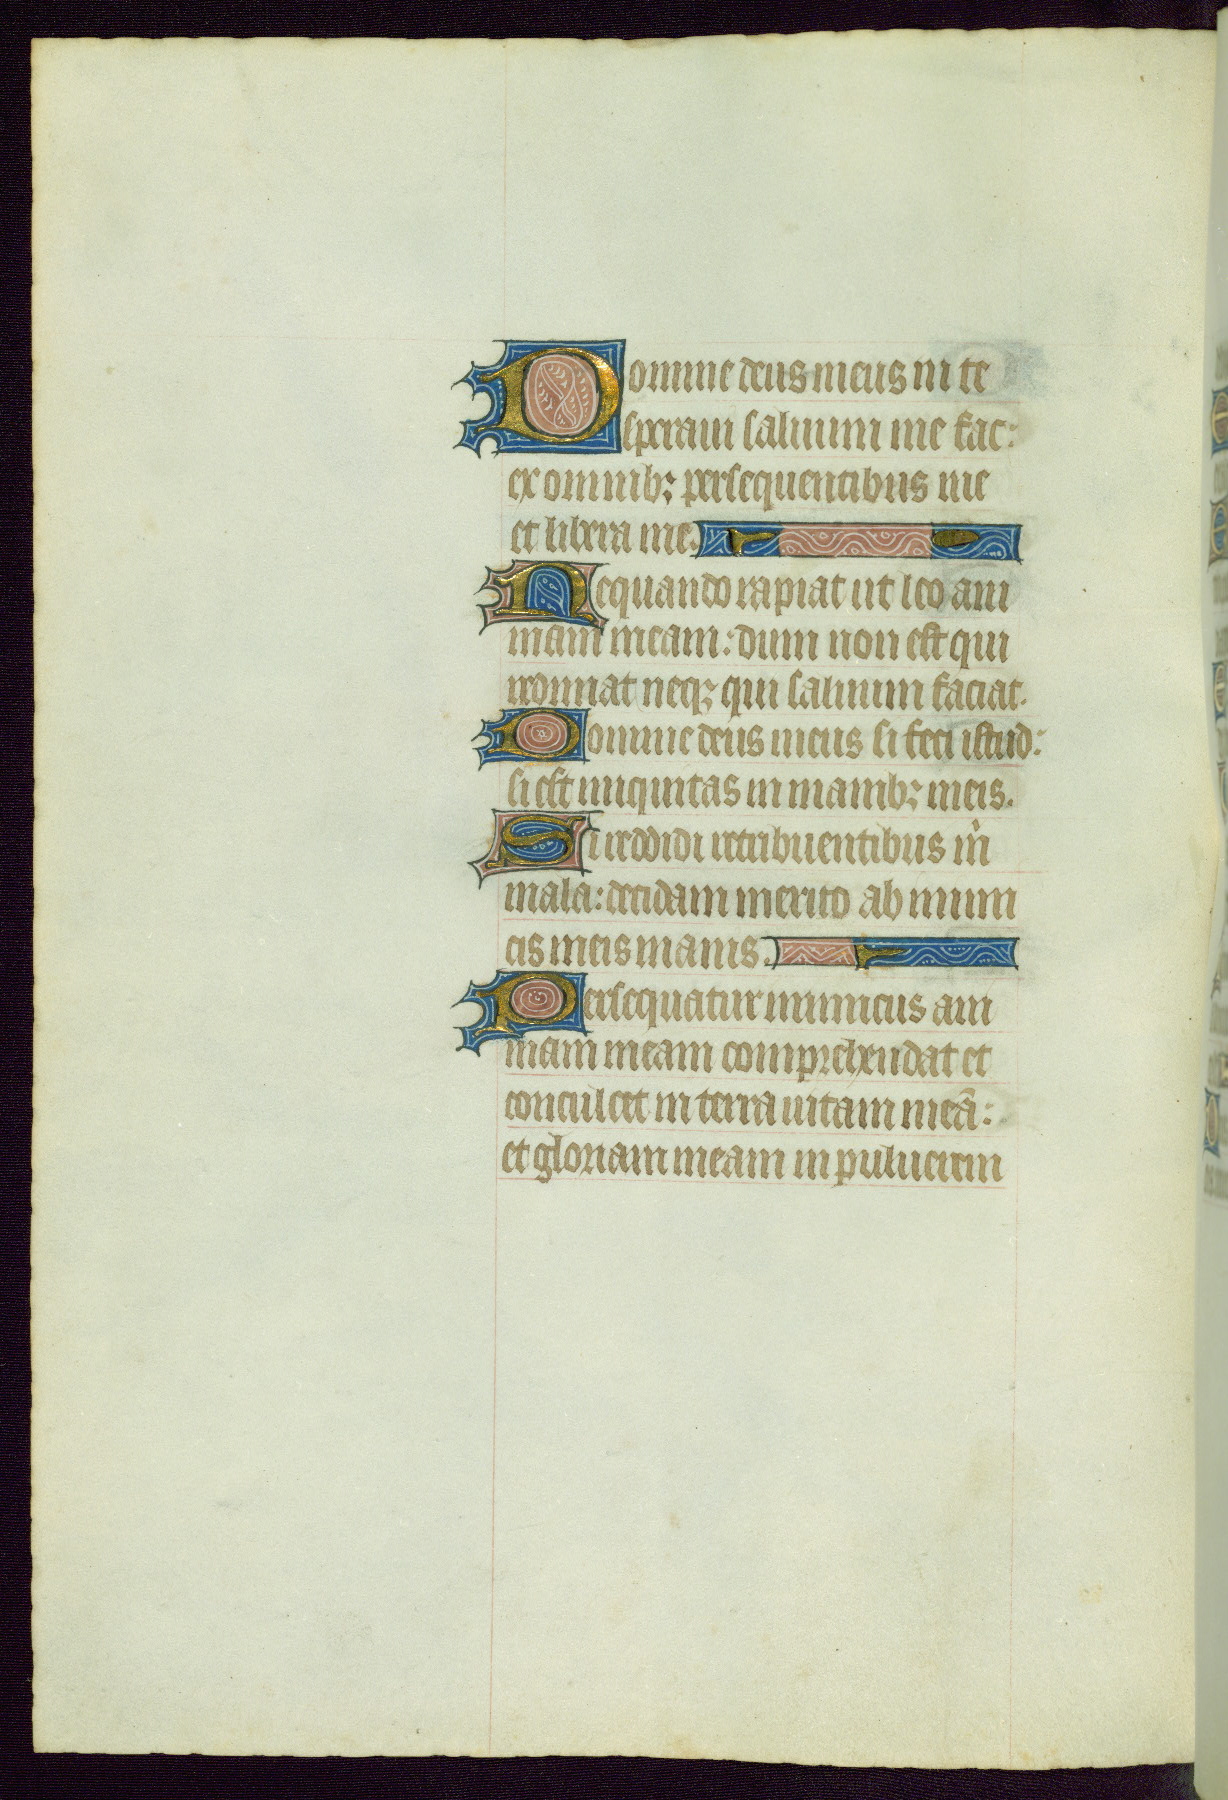 Domine deus meus in te
speraui saluum me fac:
ex omnibꝫ persequentibus me
et libera me.
Nequando rapiat ut leo ani
mam meam: dum non est qui
redimat neqꝫ qui saluum faciat.
Domine deus meus si feci istud:
si est iniquitas in manibꝫ meis.
Si reddidi retribuentibus m̉
mala: decidam merito ab inimi
cis meis inanis.
Persequatur inimicus ani
mam meam comprehendat et
conculcet in terra uitam meā:
et gloriam meam in puluerem